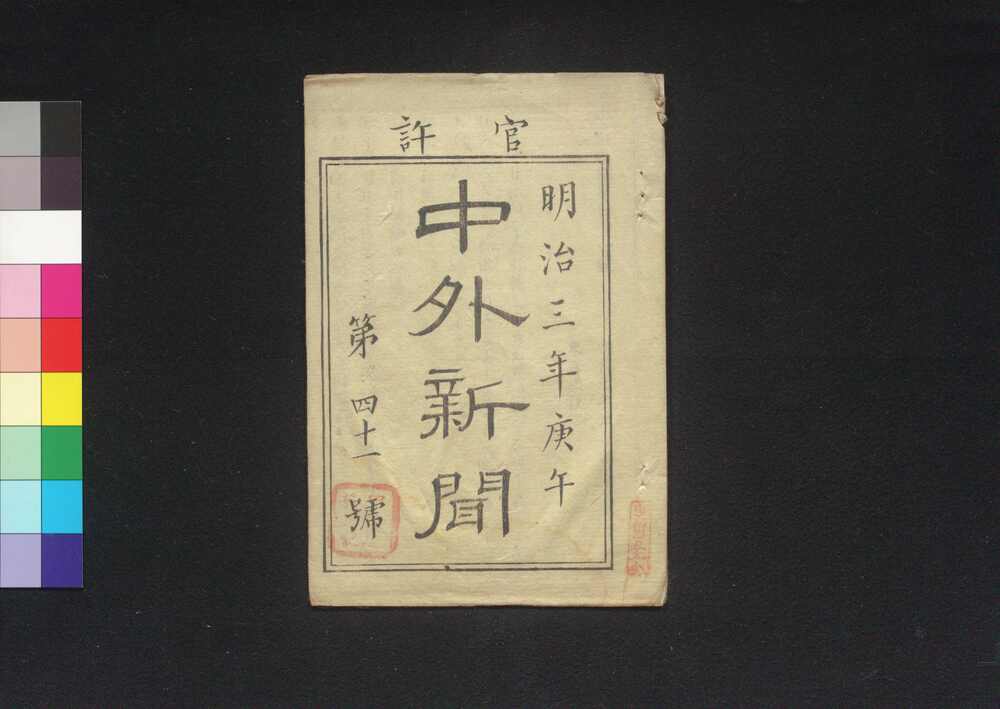 官許
明治三年庚午
中外新聞
第四十一號